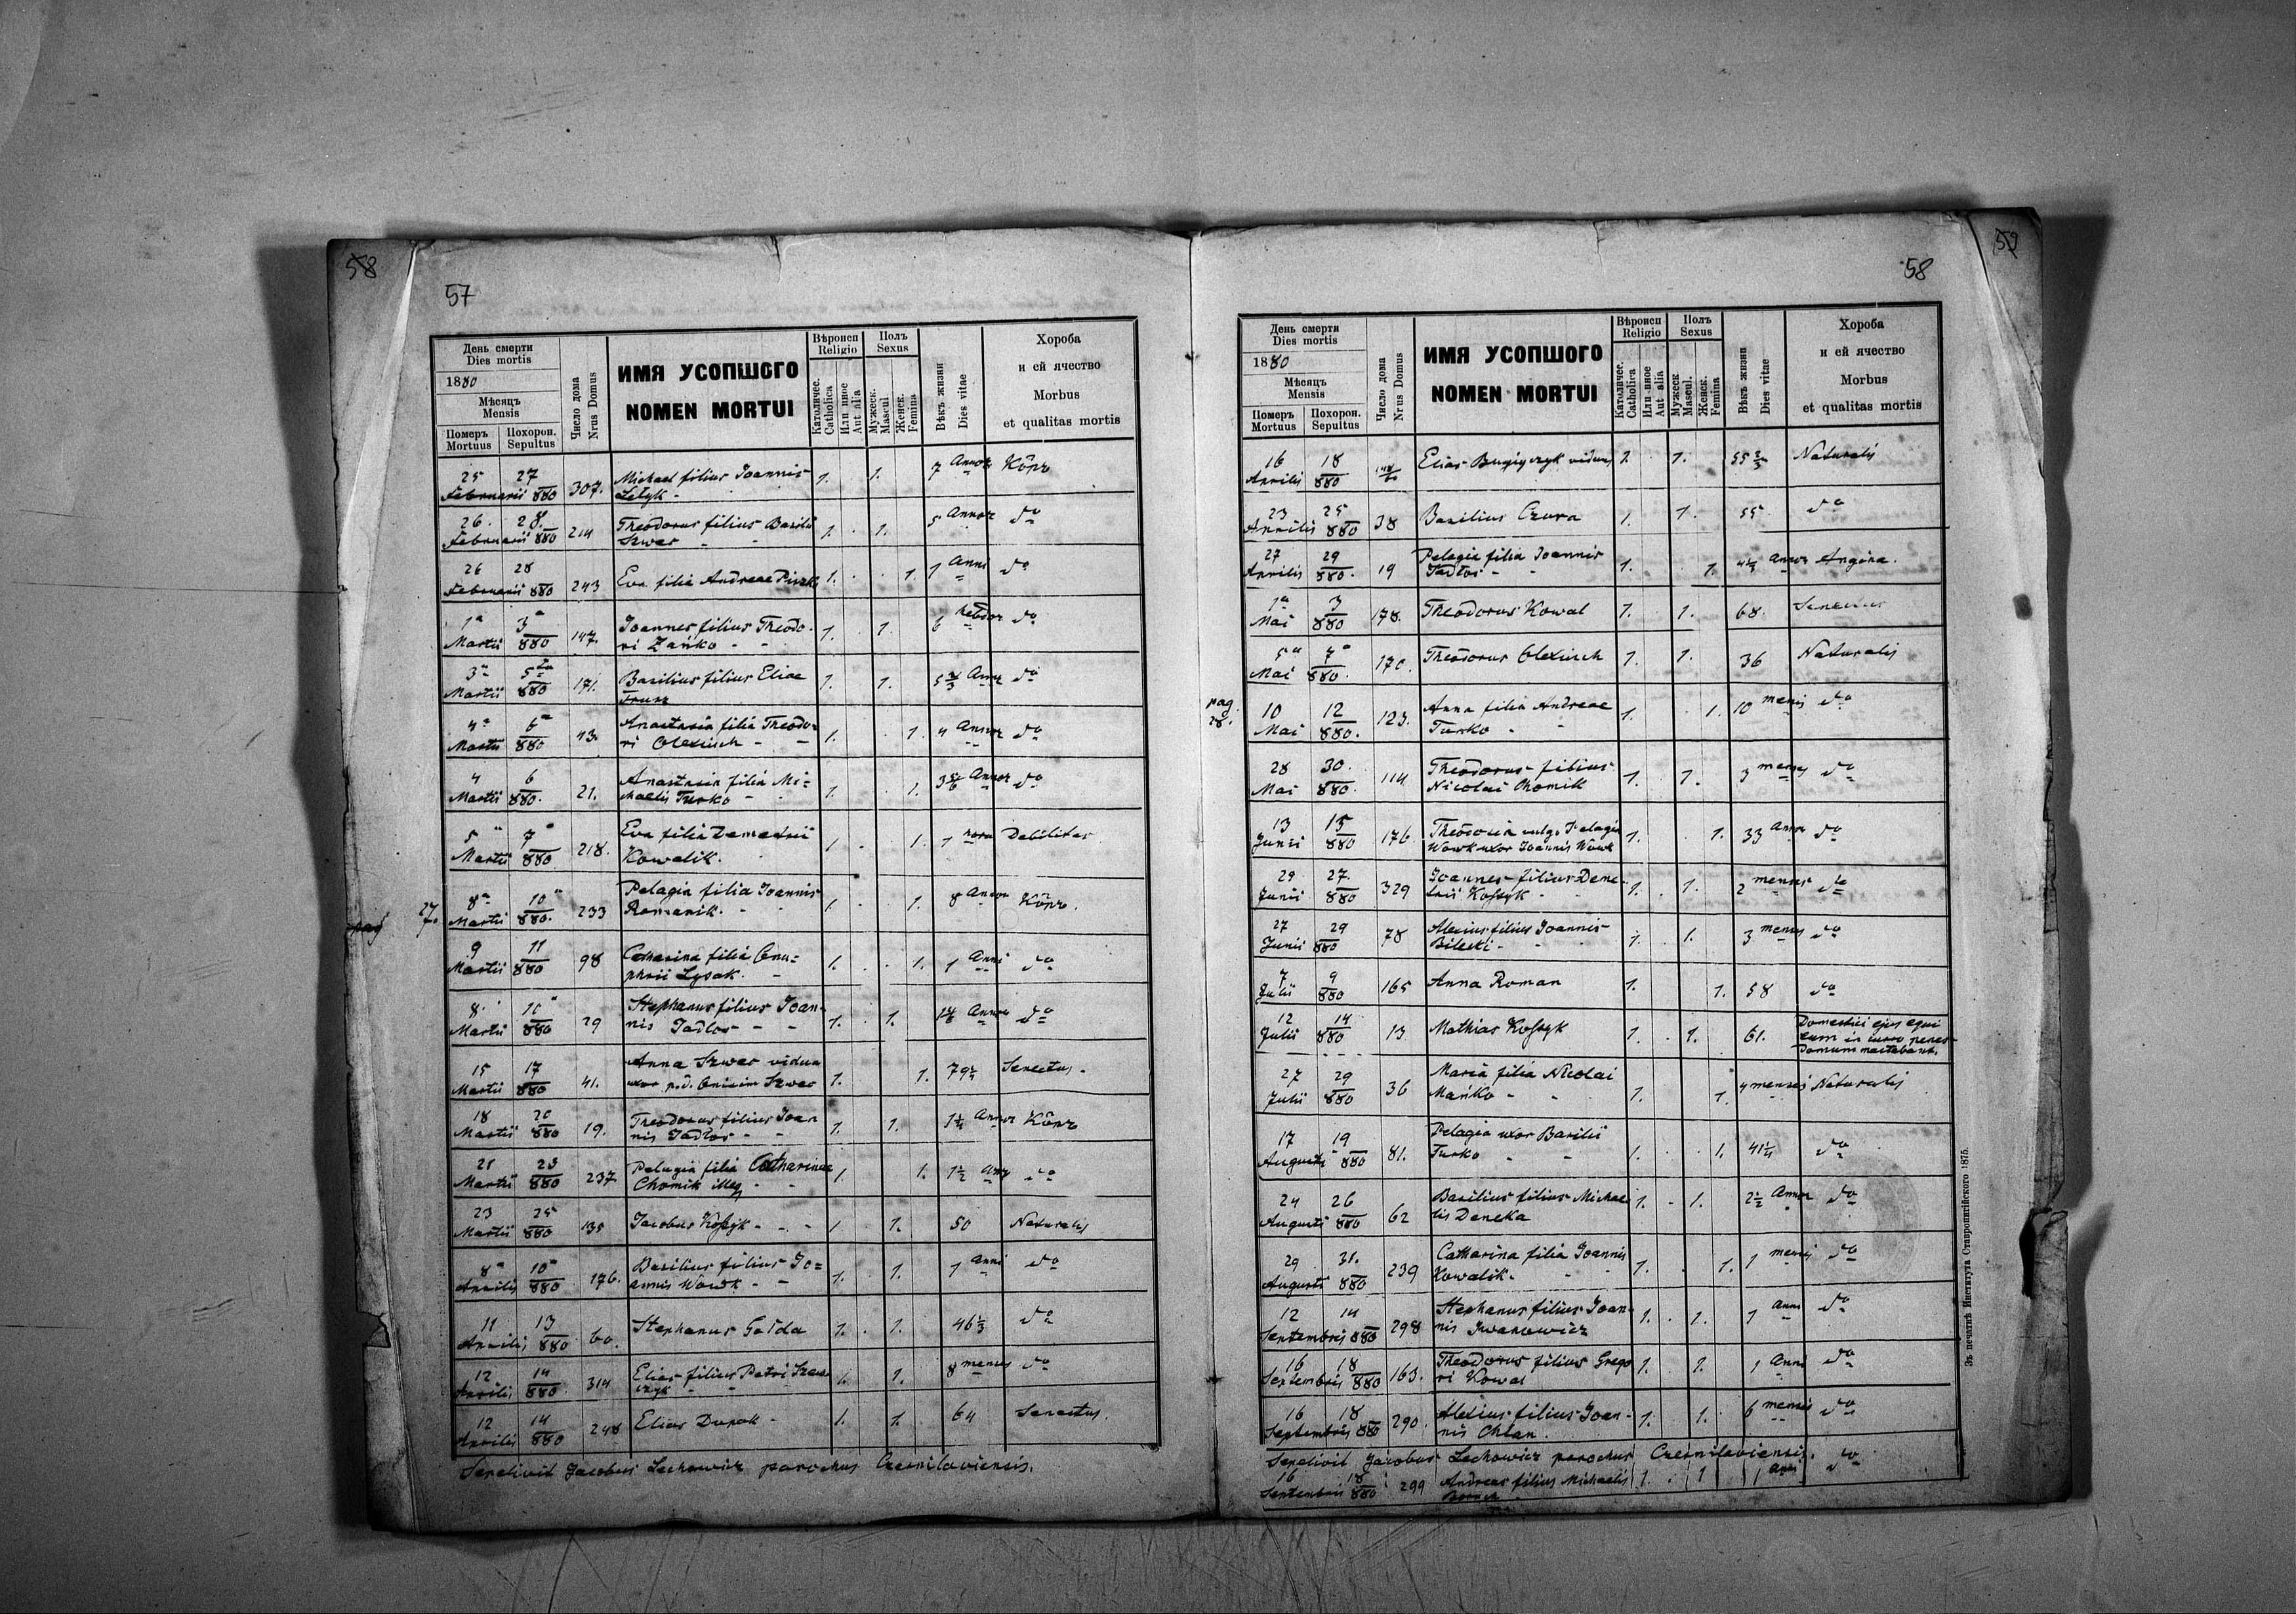 58
57
День смерти
Dies mortis
1880
Мѣсяцъ
Mensis
Померъ
Mortuus
Похорон.
Sepultus
Число дома
Nrus Domus
ИМЯ УСОПШОГО
NOMEN MORTUI
Вѣроисп
Religio
Католичес.
Catholica
Или иное
Aut alia
Полъ
Sexus
Мужеск.
Mascul.
Женск.
Femina
Вѣкъ жизни
Dies vitae
Хороба
и ей ячество
Morbus
et qualitas mortis
25 27
Februarii 880 307. Michael filius Joannis 1. 1. 7 Annor Kôpr
26. 28.
Februarii 880 214 Theodorus filius Basilii 1. 1. 5 Annor do
Szwec
26 28
Februarii 880 243 Eva filia Andreae 1. 1. 1 Anni do
1a 3a
Martii 880 147. Joannes filius Theodo- 1. 1. 6 do
ri Zańko
3a 5
Martii 880 171. Basilius filius Eliae 1. 1. 5 2/3 Annor do
4a 6a
Martii 880 43. Anastasia filia Theodo- 1. 1. 4 Annor do
ri Olexiuch
4 6
Martii 880. 21. Anastasia filia Mi- 1. 1. 3 5/6 Annor do
chaelis Turko
5 7
Martii 880. 218. Eva filia Demetrii 1. 1 hora Debilitas
Kowalik.
pag 27.
8a 10
Martii 880. 233 Pelagia filia Joannis 1. 1. 8 Annor Kôpr.
Romanik.
9 11
Martii 880 98 Catharina filia Onu= 1. 1. 1 Anni do
phrii Lysak.
8 10
Martii 880 29 Stephanus filius Joan- 1. 1. Annor do
nis Jadłos
15 17
Martii 880 41. Anna Szwec vidua 1. 1. 79 Senectus.
uxor p.d. Onisim Szwec
18 20
Martii 880 19. Theodorus filius Joan 1. 1. Annor Kôpr
nis Jadłos
21 23
Martii 880 237 Pelagia filia Catharinae 1. 1. 1 1/2 Annor do
Chomik illeg
23 25
Martii 880 135 Jacobus Kossyk 1. 1. 50 Naturalis
8a 10a
Aprilis 880 176. Basilius filius Jo= 1. 1. 1 Anni do
annis Wôwk
11 13
Aprilis 880 60. Stephanus Gołda 1. 1. 46 1/3 do
12 14
Aprilis 880. 314 Elias filius Petri 1. 1. 8 menses do
12 14
Aprilis 880 248 Elias Dupak 1. 1. 64 Senectus.
Sepelivit Jacobus Lechowicz parochus Czernilaviensis.
59
58
День смерти
Dies mortis
1880
Мѣсяцъ
Mensis
Померъ
Mortuus
Похорон.
Sepultus
Число дома
Nrus Domus
ИМЯ УСОПШОГО
NOMEN MORTUI
Вѣроисп
Religio
Католичес.
Catholica
Или иное
Aut alia
Полъ
Sexus
Мужеск
Mascul.
Женск.
Femina
Вѣкъ жизни
Dies vitae
Хороба
и ей ячество
Morbus
et qualitas mortis
16 18
Aprilis 880 Elias viduus 1. 1. 55 Naturalis
23 25
Aprilis 880 38 Basilius Czura 1. 1. 55 do
27 29
Aprilis 880. 19 Pelagia filia Joannis 1. 1. 4 1/2 Annor Angina.
Jadłos
1a 3
Mai 880 178. Theodorus Kowal 1. 1. 68. Senectus
5a 7a
Mai 880. 170. Theodorus Olexiuch 1. 1. 36 Naturalis
pag. 28.
10 12
Mai 880. 123. Anna filia Andreae 1. 1. 10 mensis do
Turko
28 30.
Mai 880. 114 Theodorus filius 1. 1. 3 menses do
Nicolai Chomik
13 15
Junii 880 176 Theodosia vulgo Pelagia 1. 1. 33 Annor do
Wôwk uxor Joannis Wôwk
27.
Junii 880 329 Joannes filius Deme- 1. 1. 2 menses do
trii Kossyk
27 29
Junii 880 78 Alexius filius Joannis 1. 1. 3 menses do
Bilecki
7 9
Julii 880 165 Anna Roman 1. 1. 58 do
12 14
Julii 880 13 Mathias Kossyk 1. 1. 61. Domestici ejus equi
eum in curro penes
domum mactabant.
27 29
Julii 880 36 Maria filia Nicolai 1. 1. 4 menses Naturalis
Mańko
17 19
Augusti 880 81. Pelagia uxor Basilii 1. 1. 41 do
Turko
24 26
Augusti 880 62 Basilius filius Michae 1. 1. 2 1/2 Annor do
lis Deneka
29 31.
Augusti 880 239 Catharina filia Joannis 1. 1. 1 mensis do
Kowalik.
12 14
Septembris 880 298 Stephanus filius Joan- 1. 1. 1 Anni do
nis Iwanowicz
16 18
Septembris 880 163. Theodorus filius Grego 1. 1. 1 Anni do
ri Kowal
16 18
Septembris 880 290. Alexius filius Joan- 1. 1. 6 menses do
nis Chlan.
Sepelivit Jacobus Lechowicz parochus Czernilaviensis.
16 18
Septembris 880 299 Andreas filius Michaelis 1. 1 1 Anni do
Зъ печатнѣ Института Ставропигійского 1875.